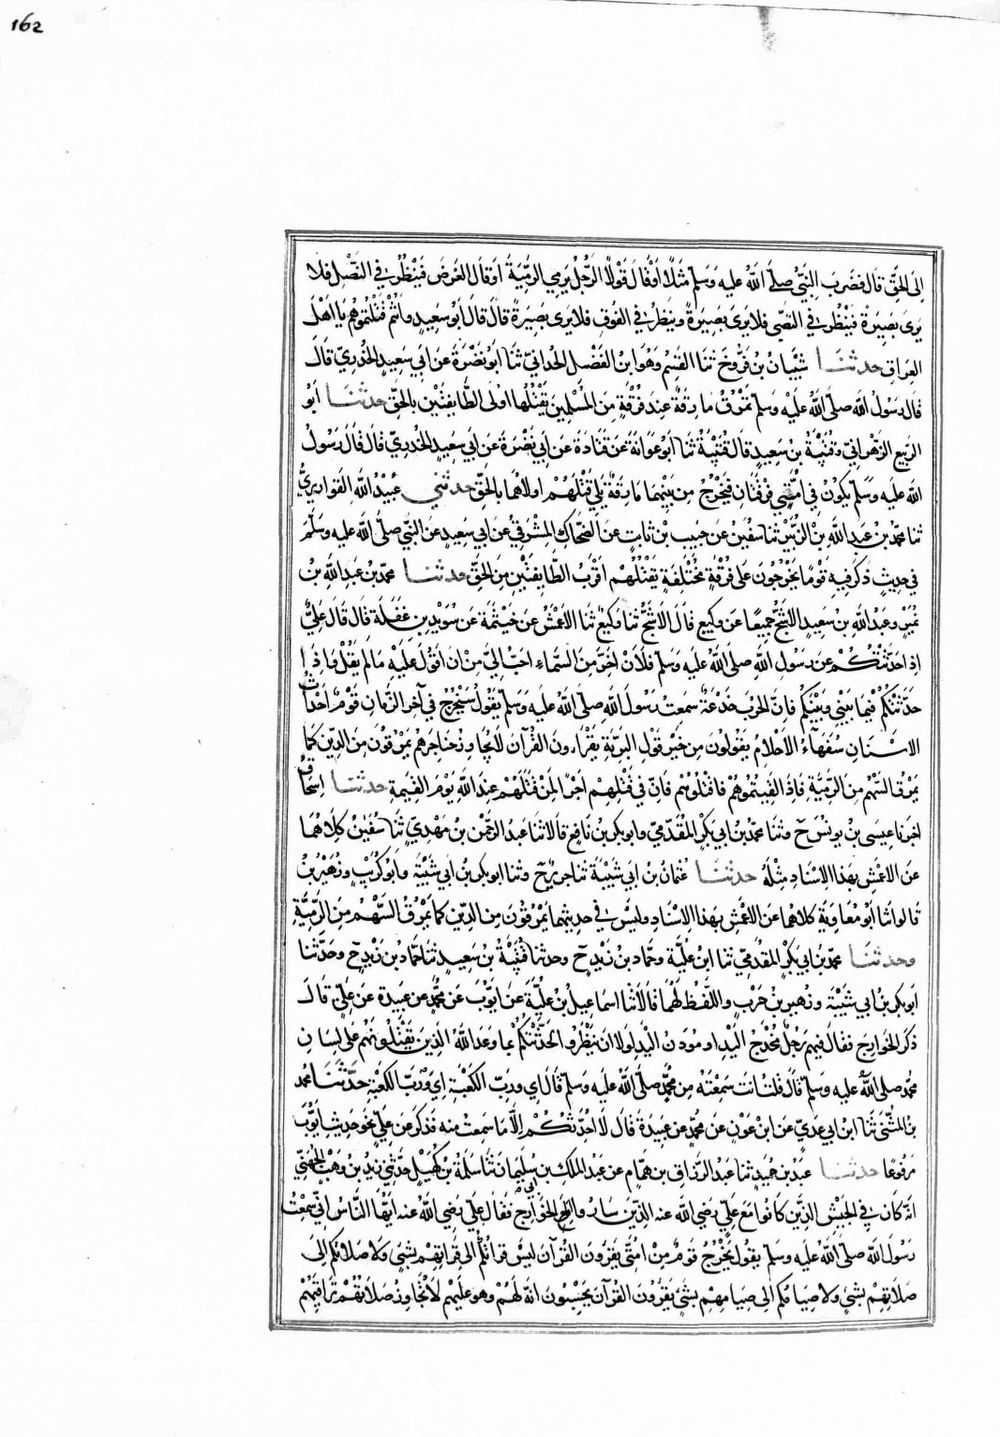 162
الى الحق قال فضرب النبي صلى الله عليه وسلم مثلا او قال قولا الرجل يرمي الرمية او قال الغرض فينظر في النصل فلا
يرى بصيرة فينظر في النضي فلا يرى بصيرة وينظر في الفوق فلا يرى بصيرة قال قال ابو سعيد وانتم قتلتموهم يا اهل
العراق حدثنا شيبان بن فروخ ثنا القسم وهو ابن الفضل الحداني ثنا ابو نضرة عن ابي سعيد الخدري قال
قال رسول الله صلى الله عليه وسلم تمرق مارقة عند فرقة من المسلمين يقتلها اولى الطايفتين بالحق حدثنا ابو
الربيع الزهراني وقتيبة بن سعيد قال قتيبة ثنا ابو عوانة عن قتادة عن ابي نضرة عن ابي سعيد الخدري قال قال رسول
الله عليه وسلم يكون في امتي فرقتان فيخرج من بينهما مارقة يلي قتلهم اولاهما بالحق حدثني عبيد الله القواريري
ثنا محمد بن عبد الله بن الزبير ثنا سفين عن حبيب بن ثابت عن الضحاك المشرقي عن ابي سعيد عن النبي صلى الله عليه وسلم
في حديث ذكر فيه قوما يخرجون على فرقة مختلفة يقتلهم اقرب الطايفتين من الحق حدثنا محمد بن عبد الله بن
نمير وعبد الله بن سعيد الاشج جميعا عن وكيع قال الاشج ثنا وكيع ثنا الاعمش عن خيثمة عن سويد بن غفلة قال قال علي
اذا حدثتكم عن رسول الله صلى الله عليه وسلم فلان اخر من السماء احب الي من ان اقول عليه ما لم يقل فاذا
حدثتكم فيما بيني وبينكم فان الحرب خدعة سمعت رسول الله صلى الله عليه وسلم يقول سيخرج في آخر الزمان قوم احداث
الاسنان سفهآء الاحلام يقولون من خير قول البرية يقراءون القرآن لا يجاوز حناجرهم يمرقون من الدين كما
يمرق السهم من الرمية فاذا لقيتموهم فاقتلوهم فان في قتلهم اجرا لمن قتلهم عند الله يوم القيمة حدثنا اسحاق
اخبرنا عيسى بن يونس ح وثنا محمد بن ابي بكر المقدمي وابو بكر بن نافع قالا ثنا عبد الرحمن بن مهدي ثنا سفين كلاهما
عن الاعمش بهذا الاسناد مثله حدثنا عثمان بن ابي شيبة ثنا جرير ح وثنا ابو بكر بن ابي شيبة وابو كريب وزهير بن
قالوا ثنا ابو معاوية كلاهما عن الاعمش بهذا الاسناد وليس في حديثهما يمرقون من الدين كما يمرق السهم من الرمية
وحدثنا محمد بن ابي بكر المقدمي ثنا ابن علية وحماد بن زيد ح وحدثنا قتيبة بن سعيد ثنا حماد بن زيد ح وحدثنا
ابو بكر بن ابي شيبة وزهير بن حرب واللفظ لهما قالا ثنا اسماعيل بن علية عن ايوب عن محمد عن عبيدة عن علي قال
ذكر الخوارج فقال فيهم رجل مخدج اليد او مودن اليد لولا ان تبطروا لحدثتكم بما وعد الله الذين يقتلونهم على لسان
محمد صلى الله عليه وسلم قال قلت انت سمعته من محمد صلى الله عليه وسلم قال اي ورب الكعبة اي ورب الكعبة حدثنا محمد
بن المثنى ثنا ابن ابي عدي عن ابن عون عن محمد عن عبيدة قال لا احدثكم الا ما سمعت منه فذكر عن علي نحو حديث ايوب
مرفوعا حدثنا عبد بن حميد ثنا عبد الرزاق بن همام عن عبد الملك بن سليمان ثنا سلمة بن كهيل حدثني زيد بن وهب الجهني
انه كان في الجيش الذين كانوا مع علي رضي الله عنه الذين ساروا الى الخوارج فقال علي رضي الله عنه ايها الناس اني سمعت
رسول الله صلى الله عليه وسلم يقول يخرج قوم من امتي يقرون القرآن ليس قرائتكم الى قرائتهم بشئ ولا صلاتكم الى
صلاتهم بشئ ولا صيامكم الى صيامهم بشئ يقرون القرآن يحسبون انه لهم وهو عليهم لا تجاوز صلاتهم تراقيهم